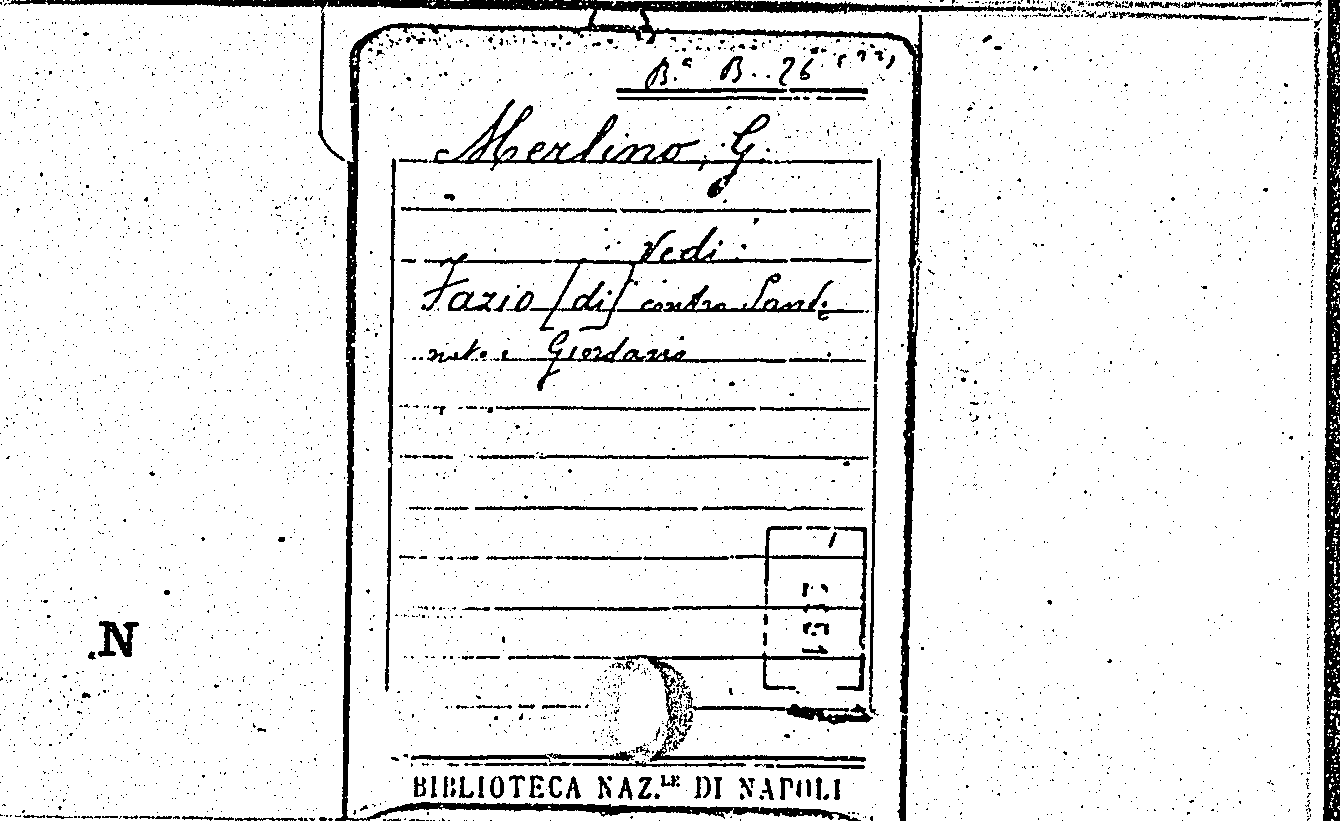 B.ª B. 26 (22)
Merlino, G.
Vedi:
Fazio [di] contro Sand.
nuto e Giordano
1
2351
N
BIBLIOTECA NAZ.LE DI NAPOLI